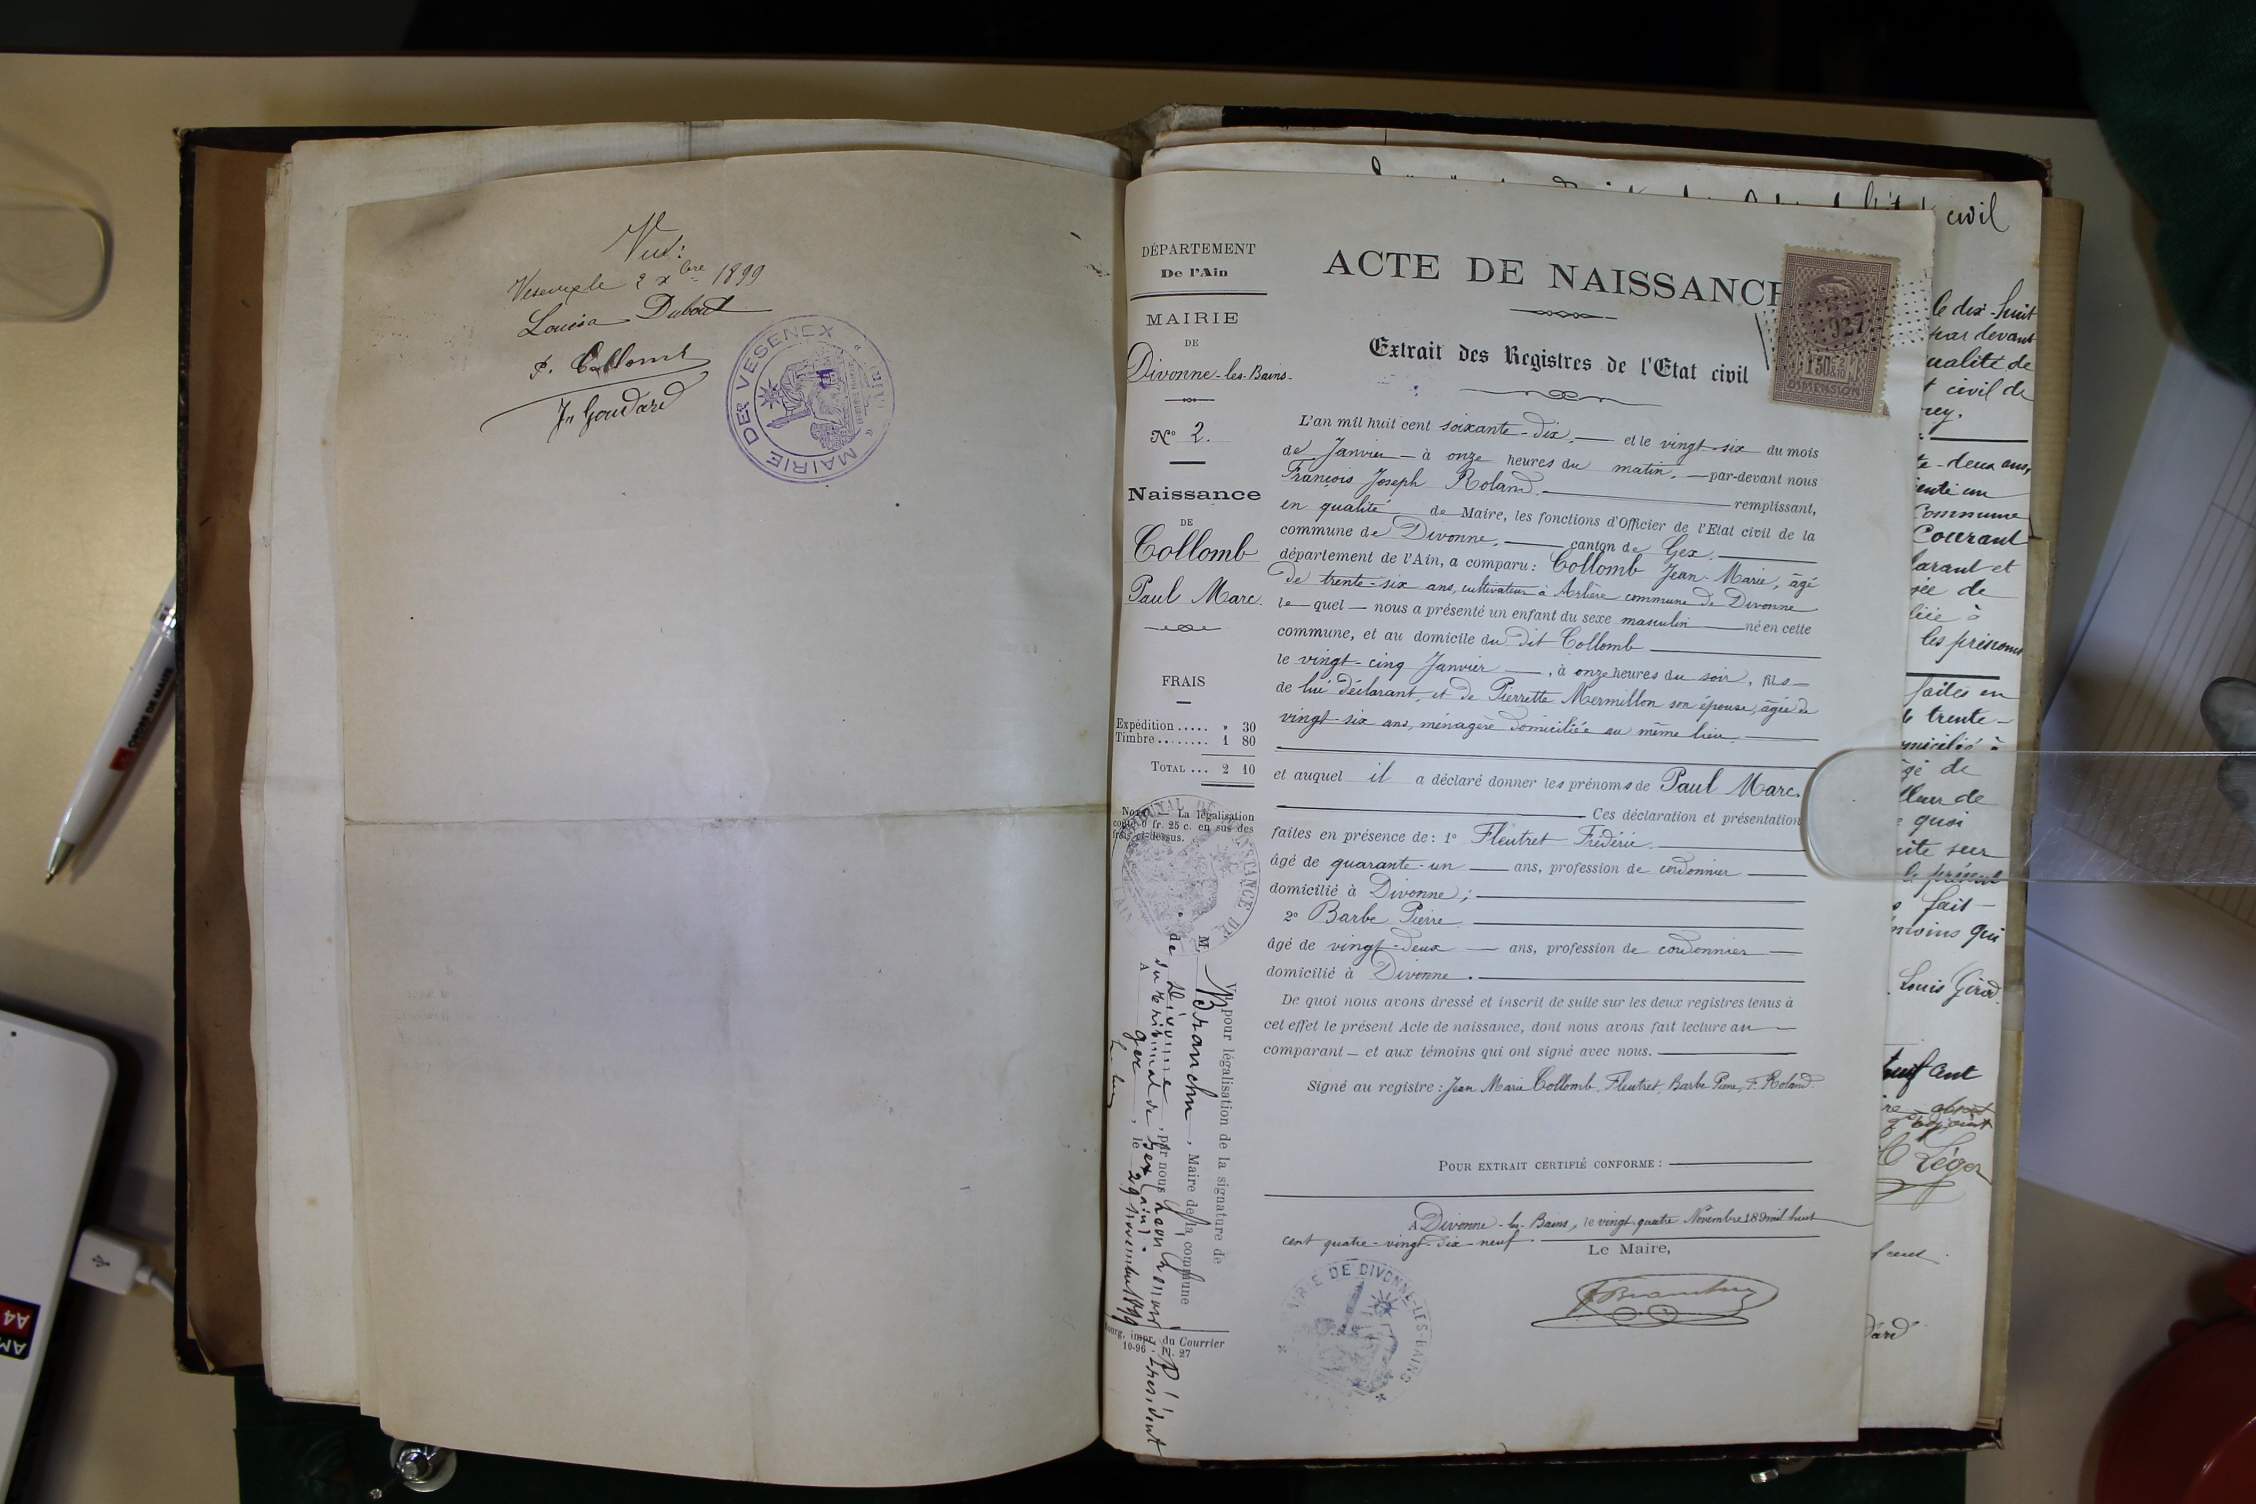 Vu:
Vesenex le 2 Xbre 1899
Louisa Dubout
P. Collomb
Jn Goudard
MAIRIE DE VESENEX
DÉPARTEMENT
De l'Ain
MAIRIE
DE
Divonne-les-Bains
N° 2.
Naissance
DE
Collomb
Paul Marc.
FRAIS
Expédition ..... » 30
Timbre ........ 1 80
TOTAL ... 2 10
NOTA. — La légalisation
coûte 0 fr. 25 c. en sus des
frais ci-dessus.
Vu pour légalisation de la signature de
M. Branchu, Maire de la commune
de Divonne, par nous Président
du tribunal de Gex (Ain).
A Gex, le 29 novembre 1899
Bourg, impr. du Courrier
10-96 Pl. 27
ACTE DE NAISSANCE
927
1F,50
DIMENSION
Extrait des Registres de l'Etat civil
L'an mil huit cent soixante-dix. — et le vingt-six du mois
de Janvier — à onze heures du matin. — par-devant nous
François Joseph Roland. — remplissant,
en qualité de Maire, les fonctions d'Officier de l'Etat civil de la
commune de Divonne. — canton de Gex. —
département de l'Ain, a comparu: Collomb Jean-Marie, âgé
de trente-six ans, cultivateur à Arbère commune de Divonne
le—quel — nous a présenté un enfant du sexe masculin — né en cette
commune, et au domicile du dit Collomb —
le vingt-cinq Janvier —, à onze heures du soir, fils —
de lui déclarant, et de Pierrette Mermillon son épouse, âgée de
vingt-six ans, ménagère domiciliée au même lieu. —
et auquel il a déclaré donner les prénoms de Paul Marc.
— Ces déclaration et présentation
faites en présence de: 1° Fleutret Frédéric. —
âgé de quarante-un — ans, profession de cordonnier —
domicilié à Divonne; —
2° Barbe Pierre —
âgé de vingt-deux — ans, profession de cordonnier —
domicilié à Divonne. —
De quoi nous avons dressé et inscrit de suite sur les deux registres tenus à
cet effet le présent Acte de naissance, dont nous avons fait lecture au —
comparant — et aux témoins qui ont signé avec nous. —
Signé au registre: Jean Marie Collomb, Fleutret, Barbe Pierre, F. Roland.
POUR EXTRAIT CERTIFIÉ CONFORME: —
A Divonne-les-Bains, le vingt quatre Novembre 189 mil huit
cent quatre-vingt-dix-neuf. —
Le Maire,
MAIRIE DE DIVONNE-LES-BAINS
civil
le dix-huit
par devant
qualité de
civil de
te-deux ans,
commune
Courant
larant et
de
les prénoms
faites en
trente-
domicilié à
âgé de
quoi
le présent
fait
témoins qui
Louis Girod.
neuf cent
l'adjoint
Léger
CROIX DE MAUR
A4